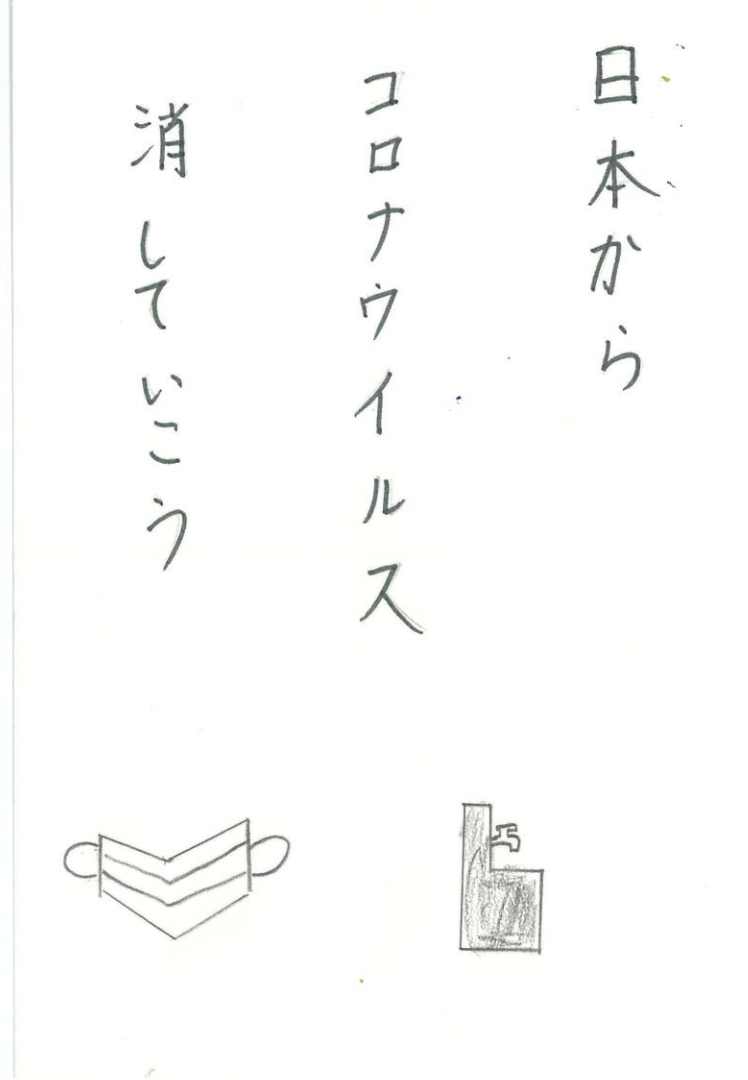 日本から
コロナウイルス
消していこう